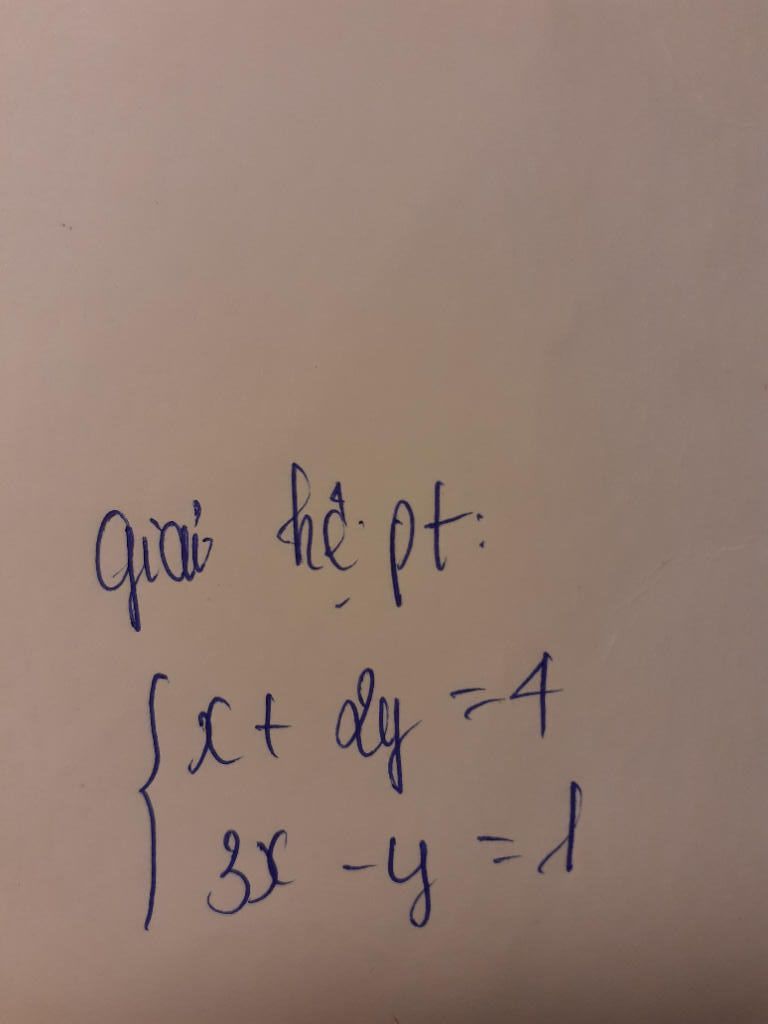 Giải hệ pt:
{ x + 2y = 4
3x - y = 1